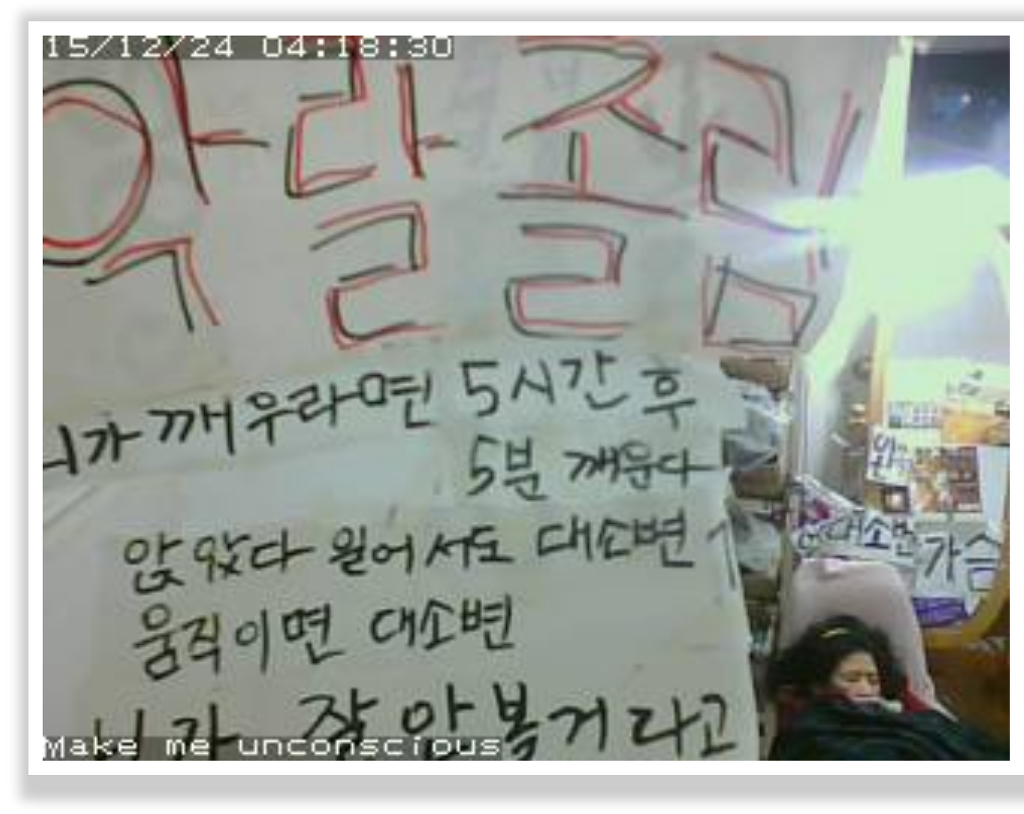 15/12/24 04:18:30
악달조림
니가 깨우라면 5시간 후
5분 깨운다
앉았다 일어서도 대소변
움직이면 대소변
니가 잘 안 볼거라고
대소변
가슴
Make me unconscious